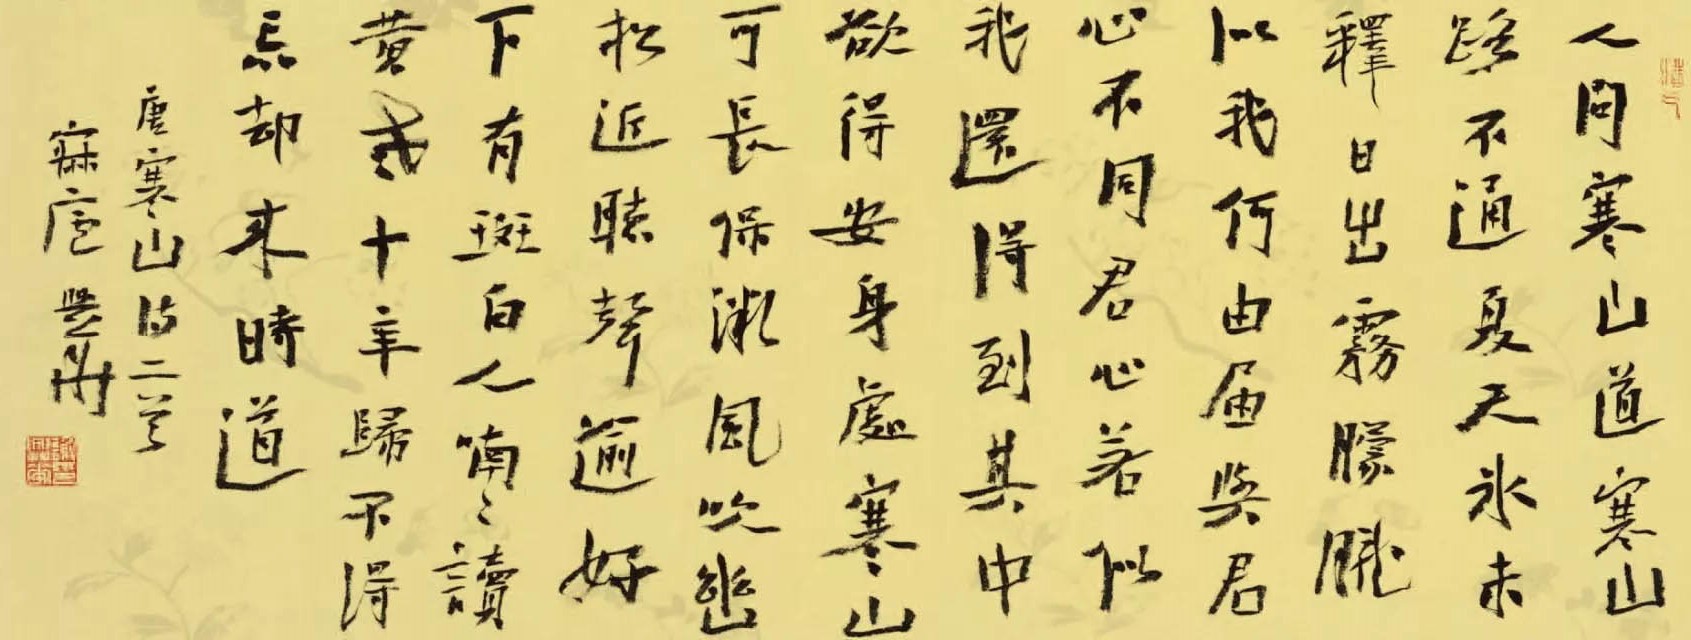 人問寒山道寒山
路不通夏天氷未
釋日出霧朦朧
似我何由届與君
心不同君心若似
我還得到其中
欲得安身處寒山
可長保微風吹幽
松近聽聲逾好
下有斑白人喃〻讀
黄老十年歸不得
忘却来時道
唐寒山詩二首